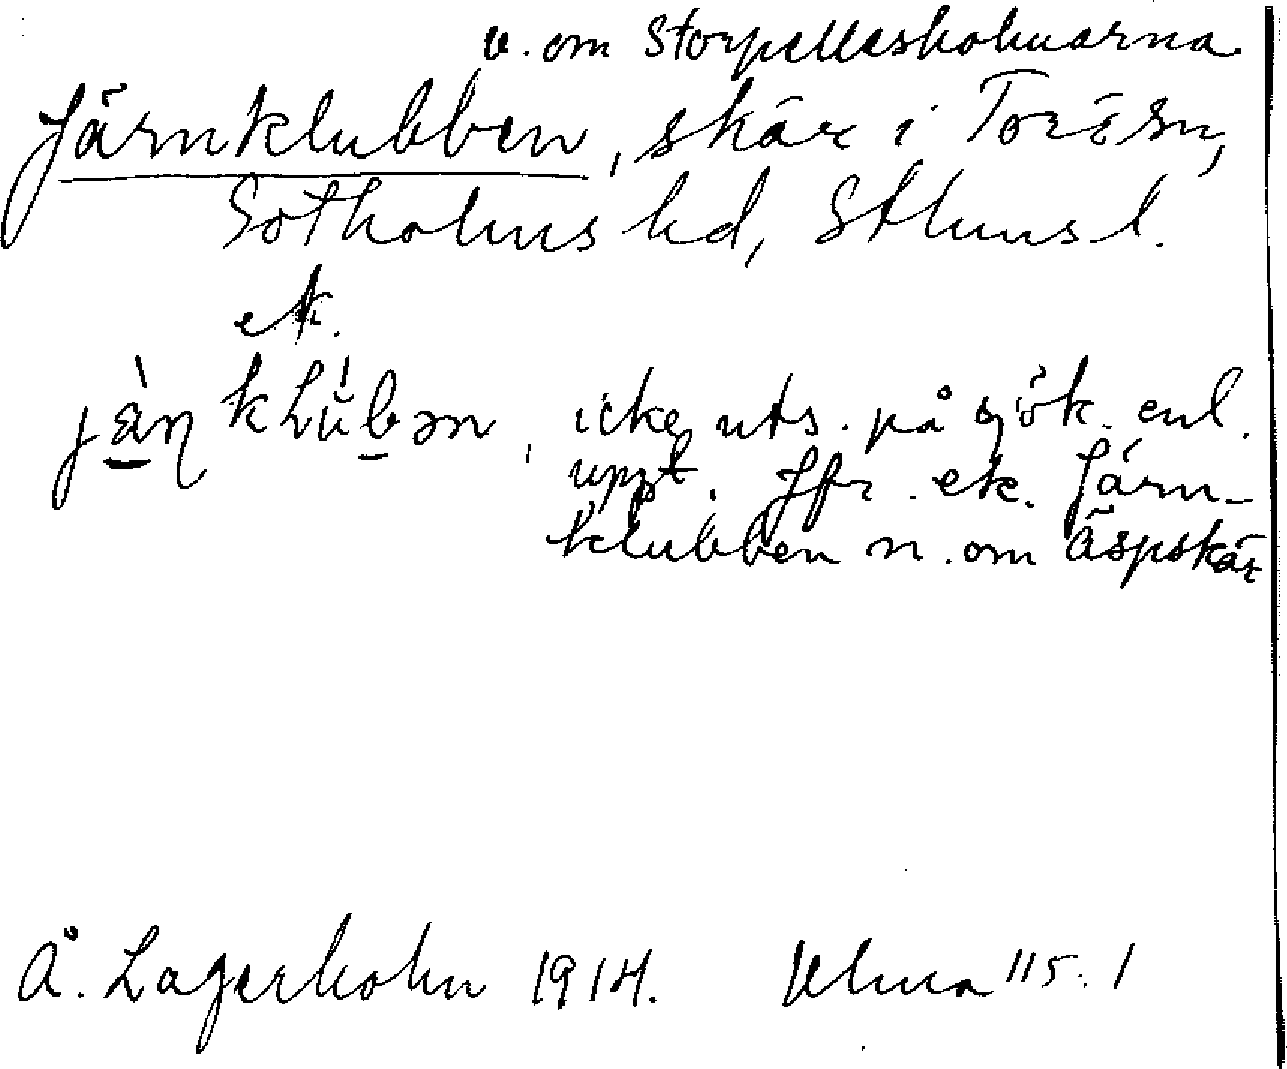 v. om Storpelleskohuarna
Järnklubben, skär i Torö sn,
Sotholms hd, Sthms l.
ek.
jän kLubən, icke uts. på sjök. enl.
uppt. Jfr. ek. Järn-
klubben n. om Äspskär
Å. Lagerholm 1914. Ulma 115:1